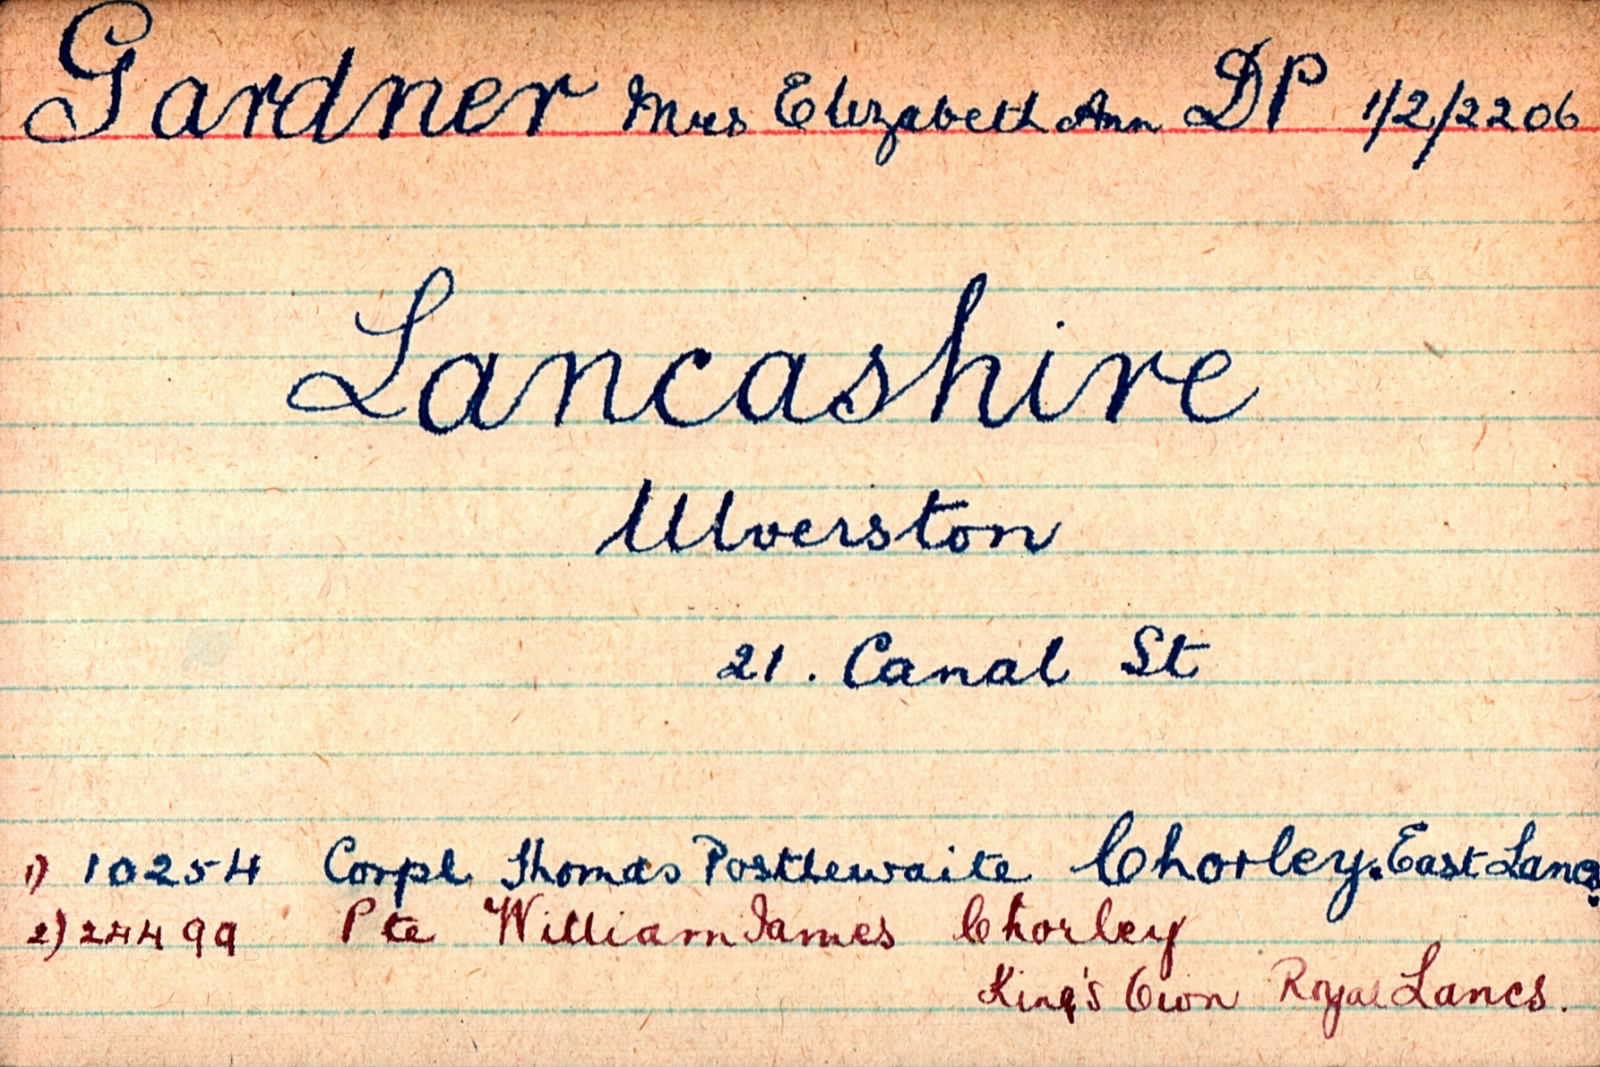 Gardner Mrs Elizabeth Ann DP 1/2/2206
Lancashire
Ulverston
21. Canal St
1) 10254 Corpl Thomas Postlewaite Chorley. East Lancs.
2) 24499 Pte William James Chorley
King's Own Royal Lancs.